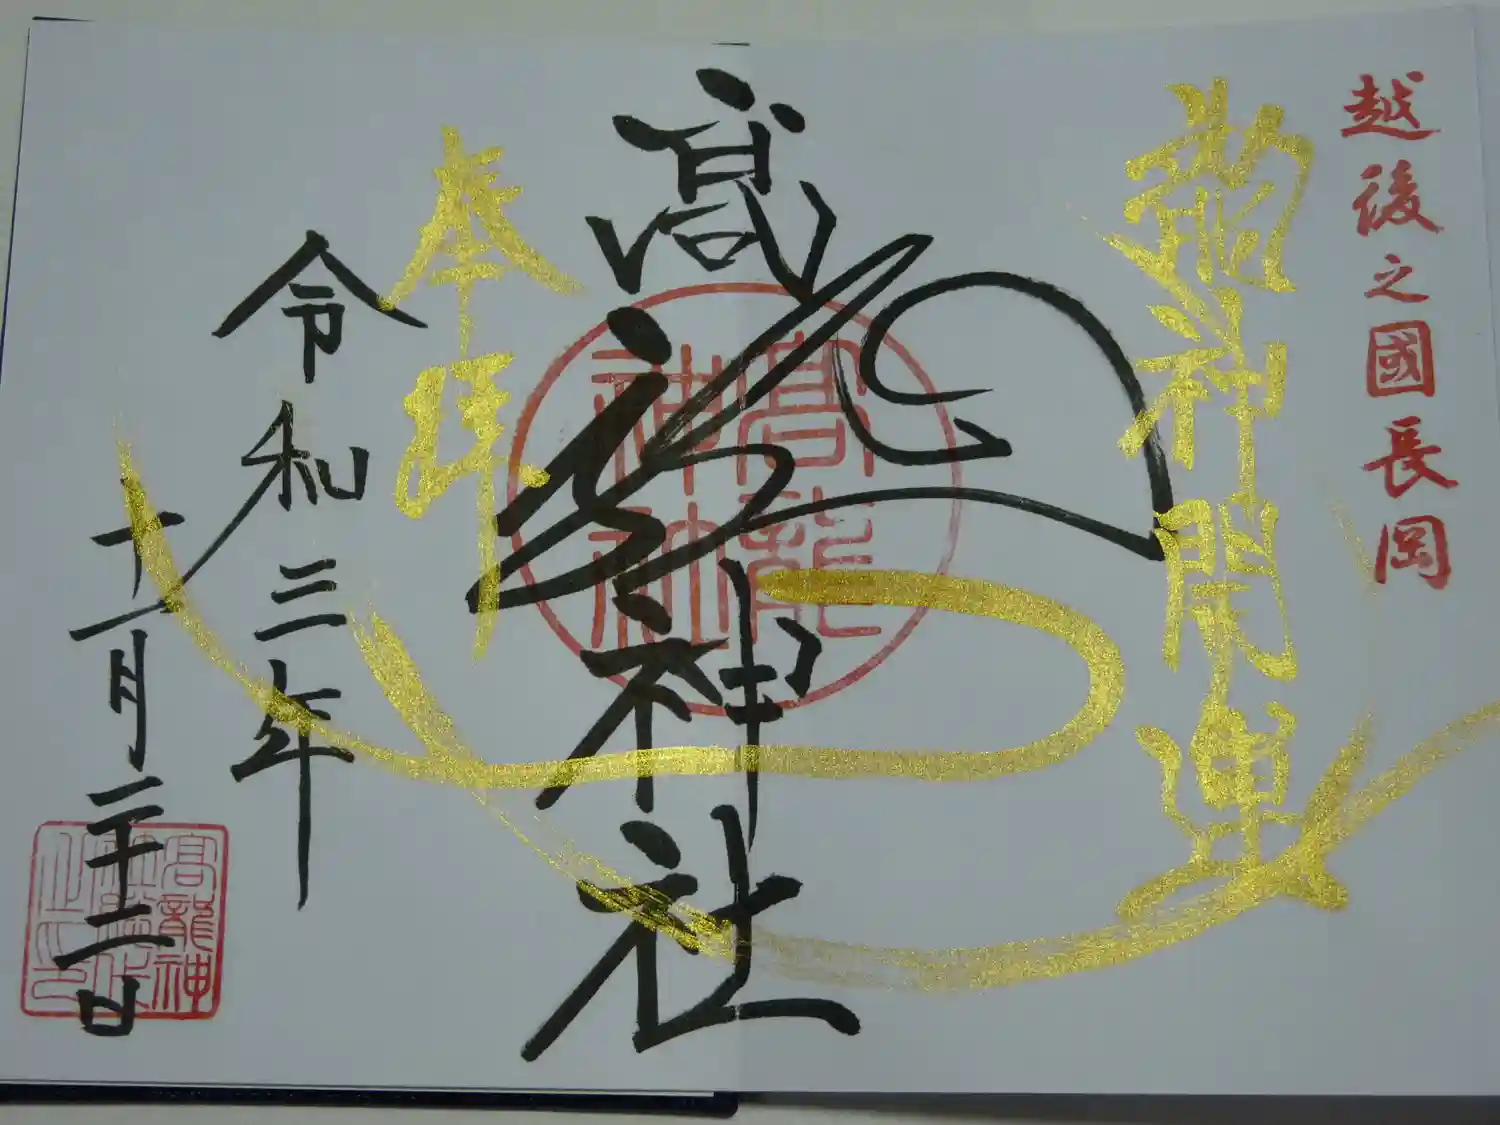 越後之國長岡
龍神開運
髙龍神社
奉拝
令和三年
十一月二十二日
高龍
神社
高龍神